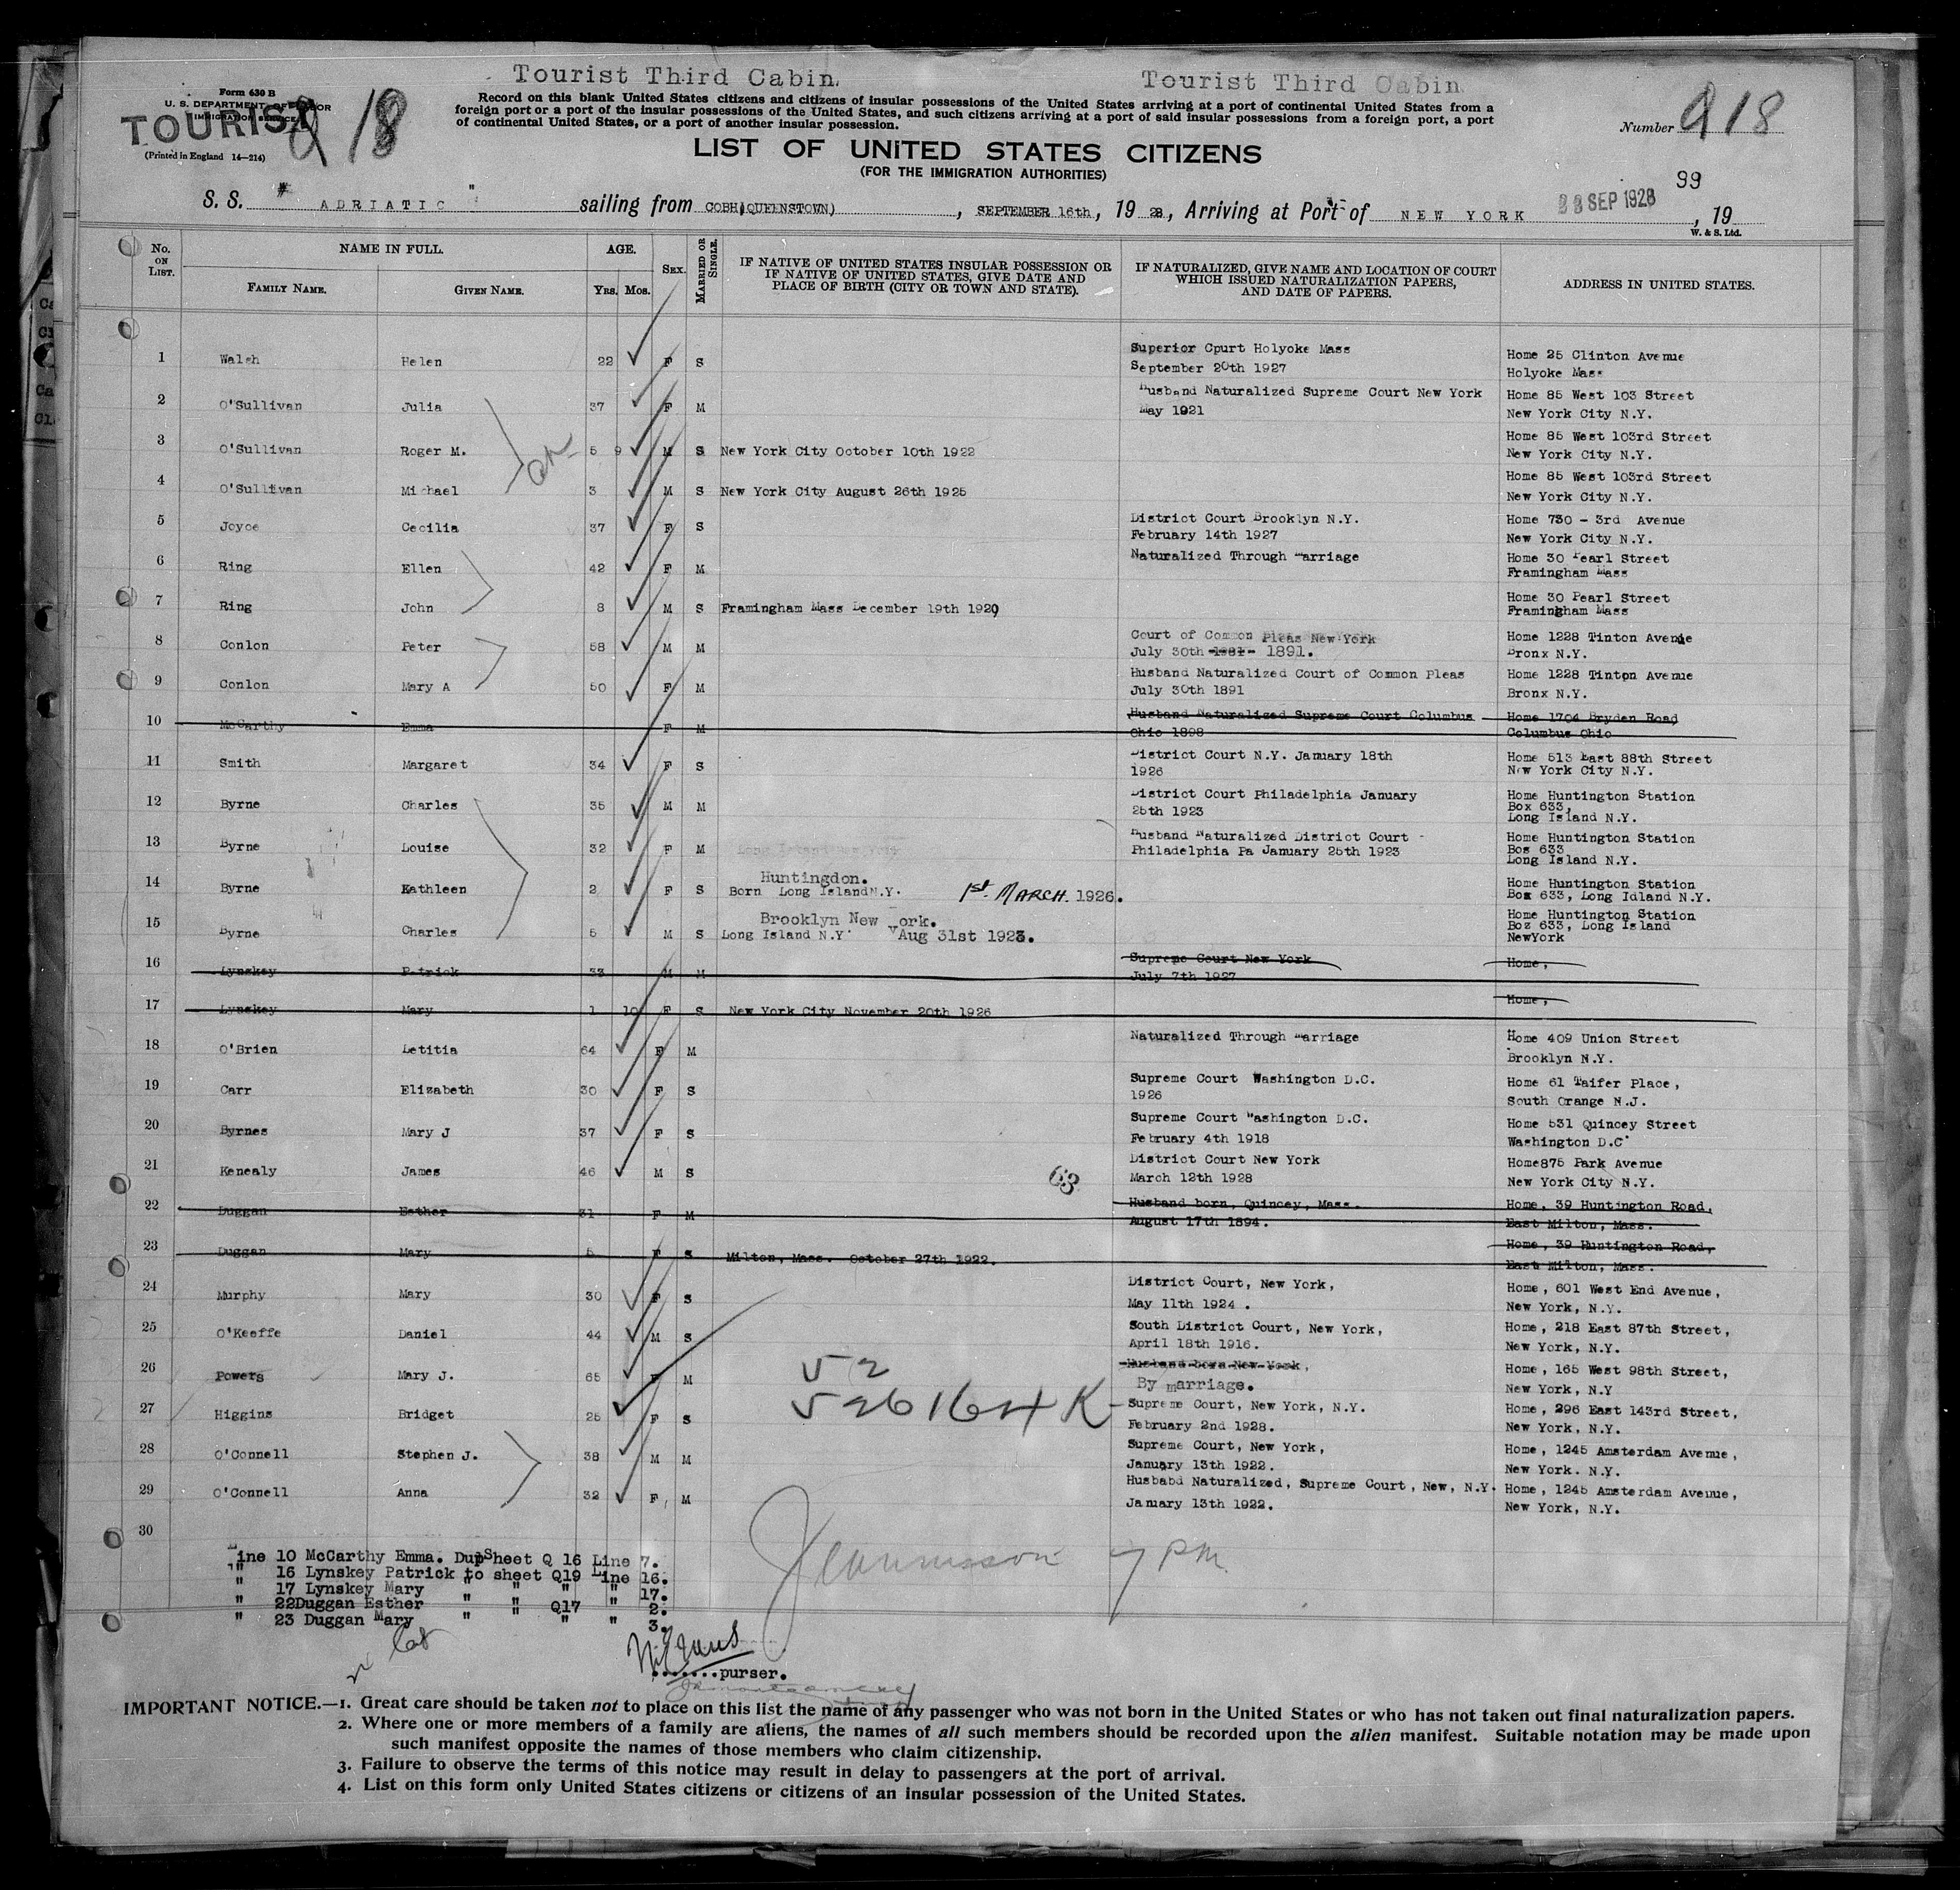 Tourist Third Cabin. Tourist Third Cabin
Form 630 B
U. S. DEPARTMENT OF LABOR
IMMIGRATION SERVICE
TOURIST
Q 18
(Printed in England 14—214)
Record on this blank United States citizens and citizens of insular possessions of the United States arriving at a port of continental United States from a
foreign port or a port of the insular possessions of the United States, and such citizens arriving at a port of said insular possessions from a foreign port, a port
of continental United States, or a port of another insular possession.
Number Q 18
LIST OF UNITED STATES CITIZENS
(FOR THE IMMIGRATION AUTHORITIES)
99
S. S. " ADRIATIC " sailing from COBH(QUEENSTOWN), SEPTEMBER 16th, 19 28, Arriving at Port of NEW YORK SEP 1928, 19
W. & S. Ltd.
No. ON LIST. NAME IN FULL. AGE. SEX. MARRIED OR SINGLE. IF NATIVE OF UNITED STATES INSULAR POSSESSION OR IF NATIVE OF UNITED STATES, GIVE DATE AND PLACE OF BIRTH (CITY OR TOWN AND STATE). IF NATURALIZED, GIVE NAME AND LOCATION OF COURT WHICH ISSUED NATURALIZATION PAPERS, AND DATE OF PAPERS. ADDRESS IN UNITED STATES.
FAMILY NAME. GIVEN NAME. YRS. MOS.
1 Walsh Helen 22 F S Superior Cpurt Holyoke Mass Home 25 Clinton Avenue
September 20th 1927 Holyoke Mass
2 O'Sullivan Julia 37 F M Husband Naturalized Supreme Court New York Home 85 West 103 Street
May 1921 New York City N.Y.
3 O'Sullivan Roger M. 5 9 M S New York City October 10th 1922 Home 85 West 103rd Street
New York City N.Y.
4 O'Sullivan Michael 3 M S New York City August 26th 1925 Home 85 West 103rd Street
New York City N.Y.
5 Joyce Cecilia 37 F S District Court Brooklyn N.Y. Home 730 - 3rd Avenue
February 14th 1927 New York City N.Y.
6 Ring Ellen 42 F M Naturalized Through Marriage Home 30 Pearl Street
Framingham Mass
7 Ring John 8 M S Framingham Mass December 19th 1920 Home 30 Pearl Street
Framingham Mass
8 Conlon Peter 58 M M Court of Common Pleas New York Home 1228 Tinton Avenue
July 30th 1981- 1891. Bronx N.Y.
9 Conlon Mary A 50 F M Husband Naturalized Court of Common Pleas Home 1228 Tinton Avenue
July 30th 1891 Bronx N.Y.
10 McCarthy Emma F M Husband Naturalized Supreme Court Columbus Home 1704 Bryden Road
Ohio 1898 Columbus Ohio
11 Smith Margaret 34 F S District Court N.Y. January 18th Home 513 East 88th Street
1926 New York City N.Y.
12 Byrne Charles 35 M M District Court Philadelphia January Home Huntington Station
25th 1923 Box 633,
Long Island N.Y.
13 Byrne Louise 32 F M Husband Naturalized District Court Home Huntington Station
Philadelphia Pa January 25th 1923 Box 633
Long Island N.Y.
14 Byrne Kathleen 2 F S Huntingdon. Home Huntington Station
Born Long Island N.Y. 1st. MARCH. 1926. Box 633, Long Idland N.Y.
15 Byrne Charles 5 M S Brooklyn New York. Home Huntington Station
Long Island N.Y. Aug 31st 1923. Boz 633, Long Island
NewYork
16 Lynskey Patrick 33 M M Supreme Court New York Home,
July 7th 1927
17 Lynskey Mary 1 10 F S New York City November 20th 1926 Home,
18 O'Brien Letitia 64 F M Naturalized Through Marriage Home 409 Union Street
Brooklyn N.Y.
19 Carr Elizabeth 30 F S Supreme Court Washington D.C. Home 61 Taifer Place,
1926 South Orange N.J.
20 Byrnes Mary J 37 F S Supreme Court Washington D.C. Home 531 Quincey Street
February 4th 1918 Washington D.C
21 Kenealy James 46 M S District Court New York Home875 Park Avenue
March 12th 1928 New York City N.Y.
22 Duggan Esther 31 F M Husband born, Quincey, Mass. Home, 39 Huntington Road,
August 17th 1894. East Milton, Mass.
23 Duggan Mary 5 F S Milton, Mass. October 27th 1922. Home, 39 Huntington Road,
East Milton, Mass.
24 Murphy Mary 30 F S District Court, New York, Home, 601 West End Avenue,
May 11th 1924. New York, N.Y.
25 O'Keeffe Daniel 44 M S South District Court, New York, Home, 218 East 87th Street,
April 18th 1916. New York, N.Y.
26 Powers Mary J. 65 F M Husband born New York, Home, 165 West 98th Street,
By marriage. New York, N.Y
52
526164 K
27 Higgins Bridget 25 F S Supreme Court, New York, N.Y. Home, 296 East 143rd Street,
February 2nd 1928. New York, N.Y.
28 O'Connell Stephen J. 38 M M Supreme Court, New York, Home, 1245 Amsterdam Avenue,
January 13th 1922. New York. N.Y.
29 O'Connell Anna 32 F M Husbabd Naturalized, Supreme Court, New, N.Y. Home, 1245 Amsterdam Avenue,
January 13th 1922. New York, N.Y.
30
7 PM
Line 10 McCarthy Emma. Dup Sheet Q 16 Line 7.
" 16 Lynskey Patrick to sheet Q19 Line 16.
" 17 Lynskey Mary " " " " 17.
" 22Duggan Esther " " Q17 " 2.
" 23 Duggan Mary " " " 3.
.......purser.
IMPORTANT NOTICE.—1. Great care should be taken not to place on this list the name of any passenger who was not born in the United States or who has not taken out final naturalization papers.
2. Where one or more members of a family are aliens, the names of all such members should be recorded upon the alien manifest. Suitable notation may be made upon
such manifest opposite the names of those members who claim citizenship.
3. Failure to observe the terms of this notice may result in delay to passengers at the port of arrival.
4. List on this form only United States citizens or citizens of an insular possession of the United States.